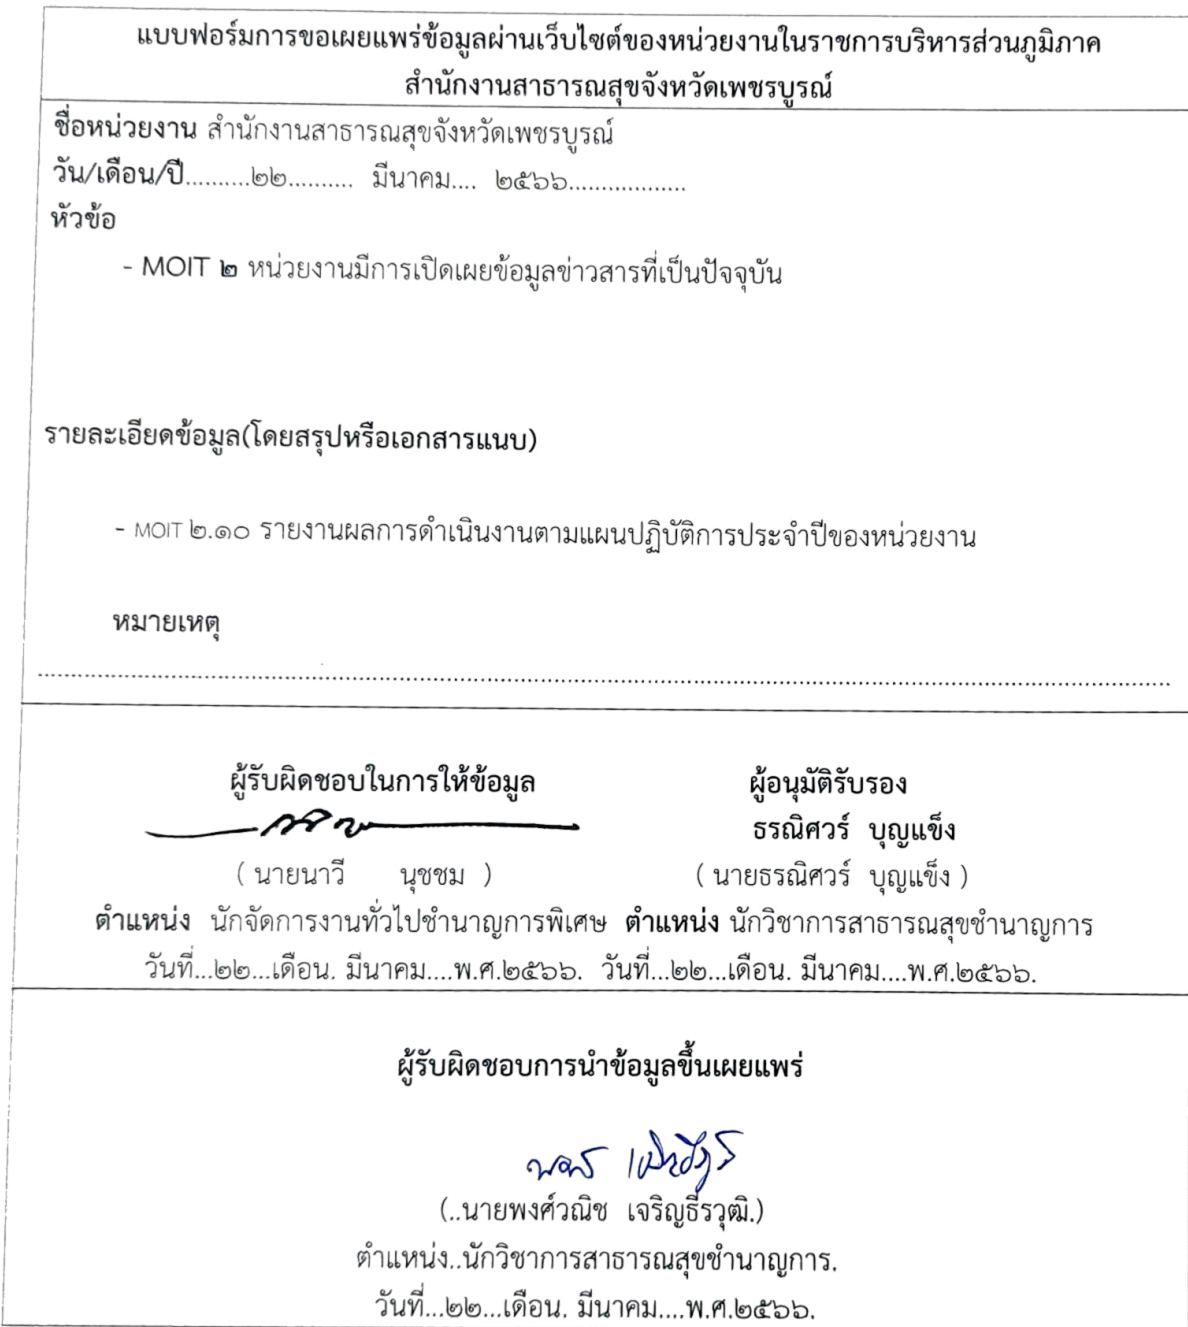 แบบฟอร์มการขอเผยแพร่ข้อมูลผ่านเว็บไซต์ของหน่วยงานในราชการบริหารส่วนภูมิภาค
สำนักงานสาธารณสุขจังหวัดเพชรบูรณ์
ชื่อหน่วยงาน สำนักงานสาธารณสุขจังหวัดเพชรบูรณ์
วัน/เดือน/ปี..........๒๒.......... มีนาคม.... ๒๕๖๖..................
หัวข้อ
- MOIT ๒ หน่วยงานมีการเปิดเผยข้อมูลข่าวสารที่เป็นปัจจุบัน
รายละเอียดข้อมูล(โดยสรุปหรือเอกสารแนบ)
- MOIT ๒.๑๐ รายงานผลการดำเนินงานตามแผนปฏิบัติการประจำปีของหน่วยงาน
หมายเหตุ
ผู้รับผิดชอบในการให้ข้อมูล ผู้อนุมัติรับรอง
ธรณิศวร์ บุญแข็ง
( นายนาวี นุชชม ) ( นายธรณิศวร์ บุญแข็ง )
ตำแหน่ง นักจัดการงานทั่วไปชำนาญการพิเศษ ตำแหน่ง นักวิชาการสาธารณสุขชำนาญการ
วันที่...๒๒...เดือน. มีนาคม....พ.ศ.๒๕๖๖. วันที่...๒๒...เดือน. มีนาคม....พ.ศ.๒๕๖๖.
ผู้รับผิดชอบการนำข้อมูลขึ้นเผยแพร่
(..นายพงศ์วณิช เจริญธีรวุฒิ.)
ตำแหน่ง..นักวิชาการสาธารณสุขชำนาญการ.
วันที่...๒๒...เดือน. มีนาคม....พ.ศ.๒๕๖๖.